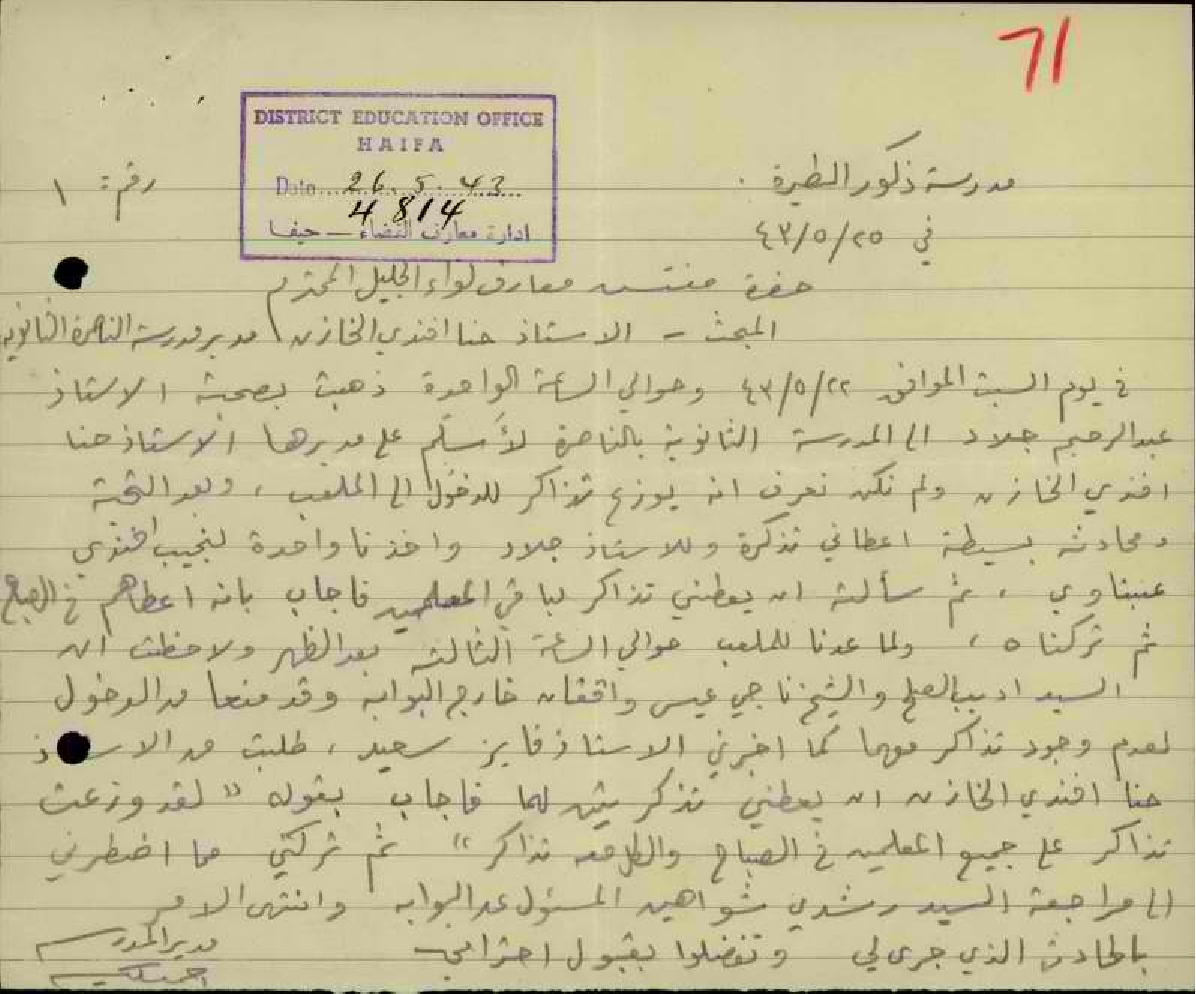 71
DISTRICT EDUCATION OFFICE
HAIFA
Date 26. 5. 43
4814
ادارة معارف القضاء — حيفا
مدرسة ذكور الطيرة . رقم: ١
في ٢٥/٥/٤٣
حضرة مفتش معارف لواء الجليل المحترم
المبحث - الاستاذ حنا افندي الخازن مدير مدرسة الناصرة الثانوية
في يوم السبت الموافق ٢٢/٥/٤٣ وحوالي الساعة الواحدة ذهبت بصحبة الاستاذ
عبدالرحيم جلاد الى المدرسة الثانوية بالناصرة لأسلّم على مديرها الاستاذ حنا
افندي الخازن ولم نكن نعرف انه يوزع تذاكر للدخول الى الملعب ، وبعد التحية
ومحادثة بسيطة اعطاني تذكرة وللاستاذ جلاد واخذنا واحدة لنجيب افندي
عنبتاوي ، ثم سألته ان يعطني تذاكر لباقي المعلمين فاجاب بانه اعطاهم في الصباح
ثم تركناه ، ولما عدنا للملعب حوالي الساعة الثالثة بعد الظهر ولاحظت ان
السيد اديب الصلح والشيخ ناجي عيسى واقفان خارج البوابه وقد منعا من الدخول
لعدم وجود تذاكر معهما كما اخبرني الاستاذ فايز سعيد ، طلبت من الاستاذ
حنا افندي الخازن ان يعطني تذكرتين لهما فاجاب بقوله " لقد وزعت
تذاكر على جميع المعلمين في الصباح والكل معه تذاكر " ثم تركني مما اضطرني
الى مراجعة السيد رشدي شواهين المسئول عن البوابه وانتهى الامر
بالحادث الذي جرى لي وتفضلوا بقبول احترامي
مدير المدرسة